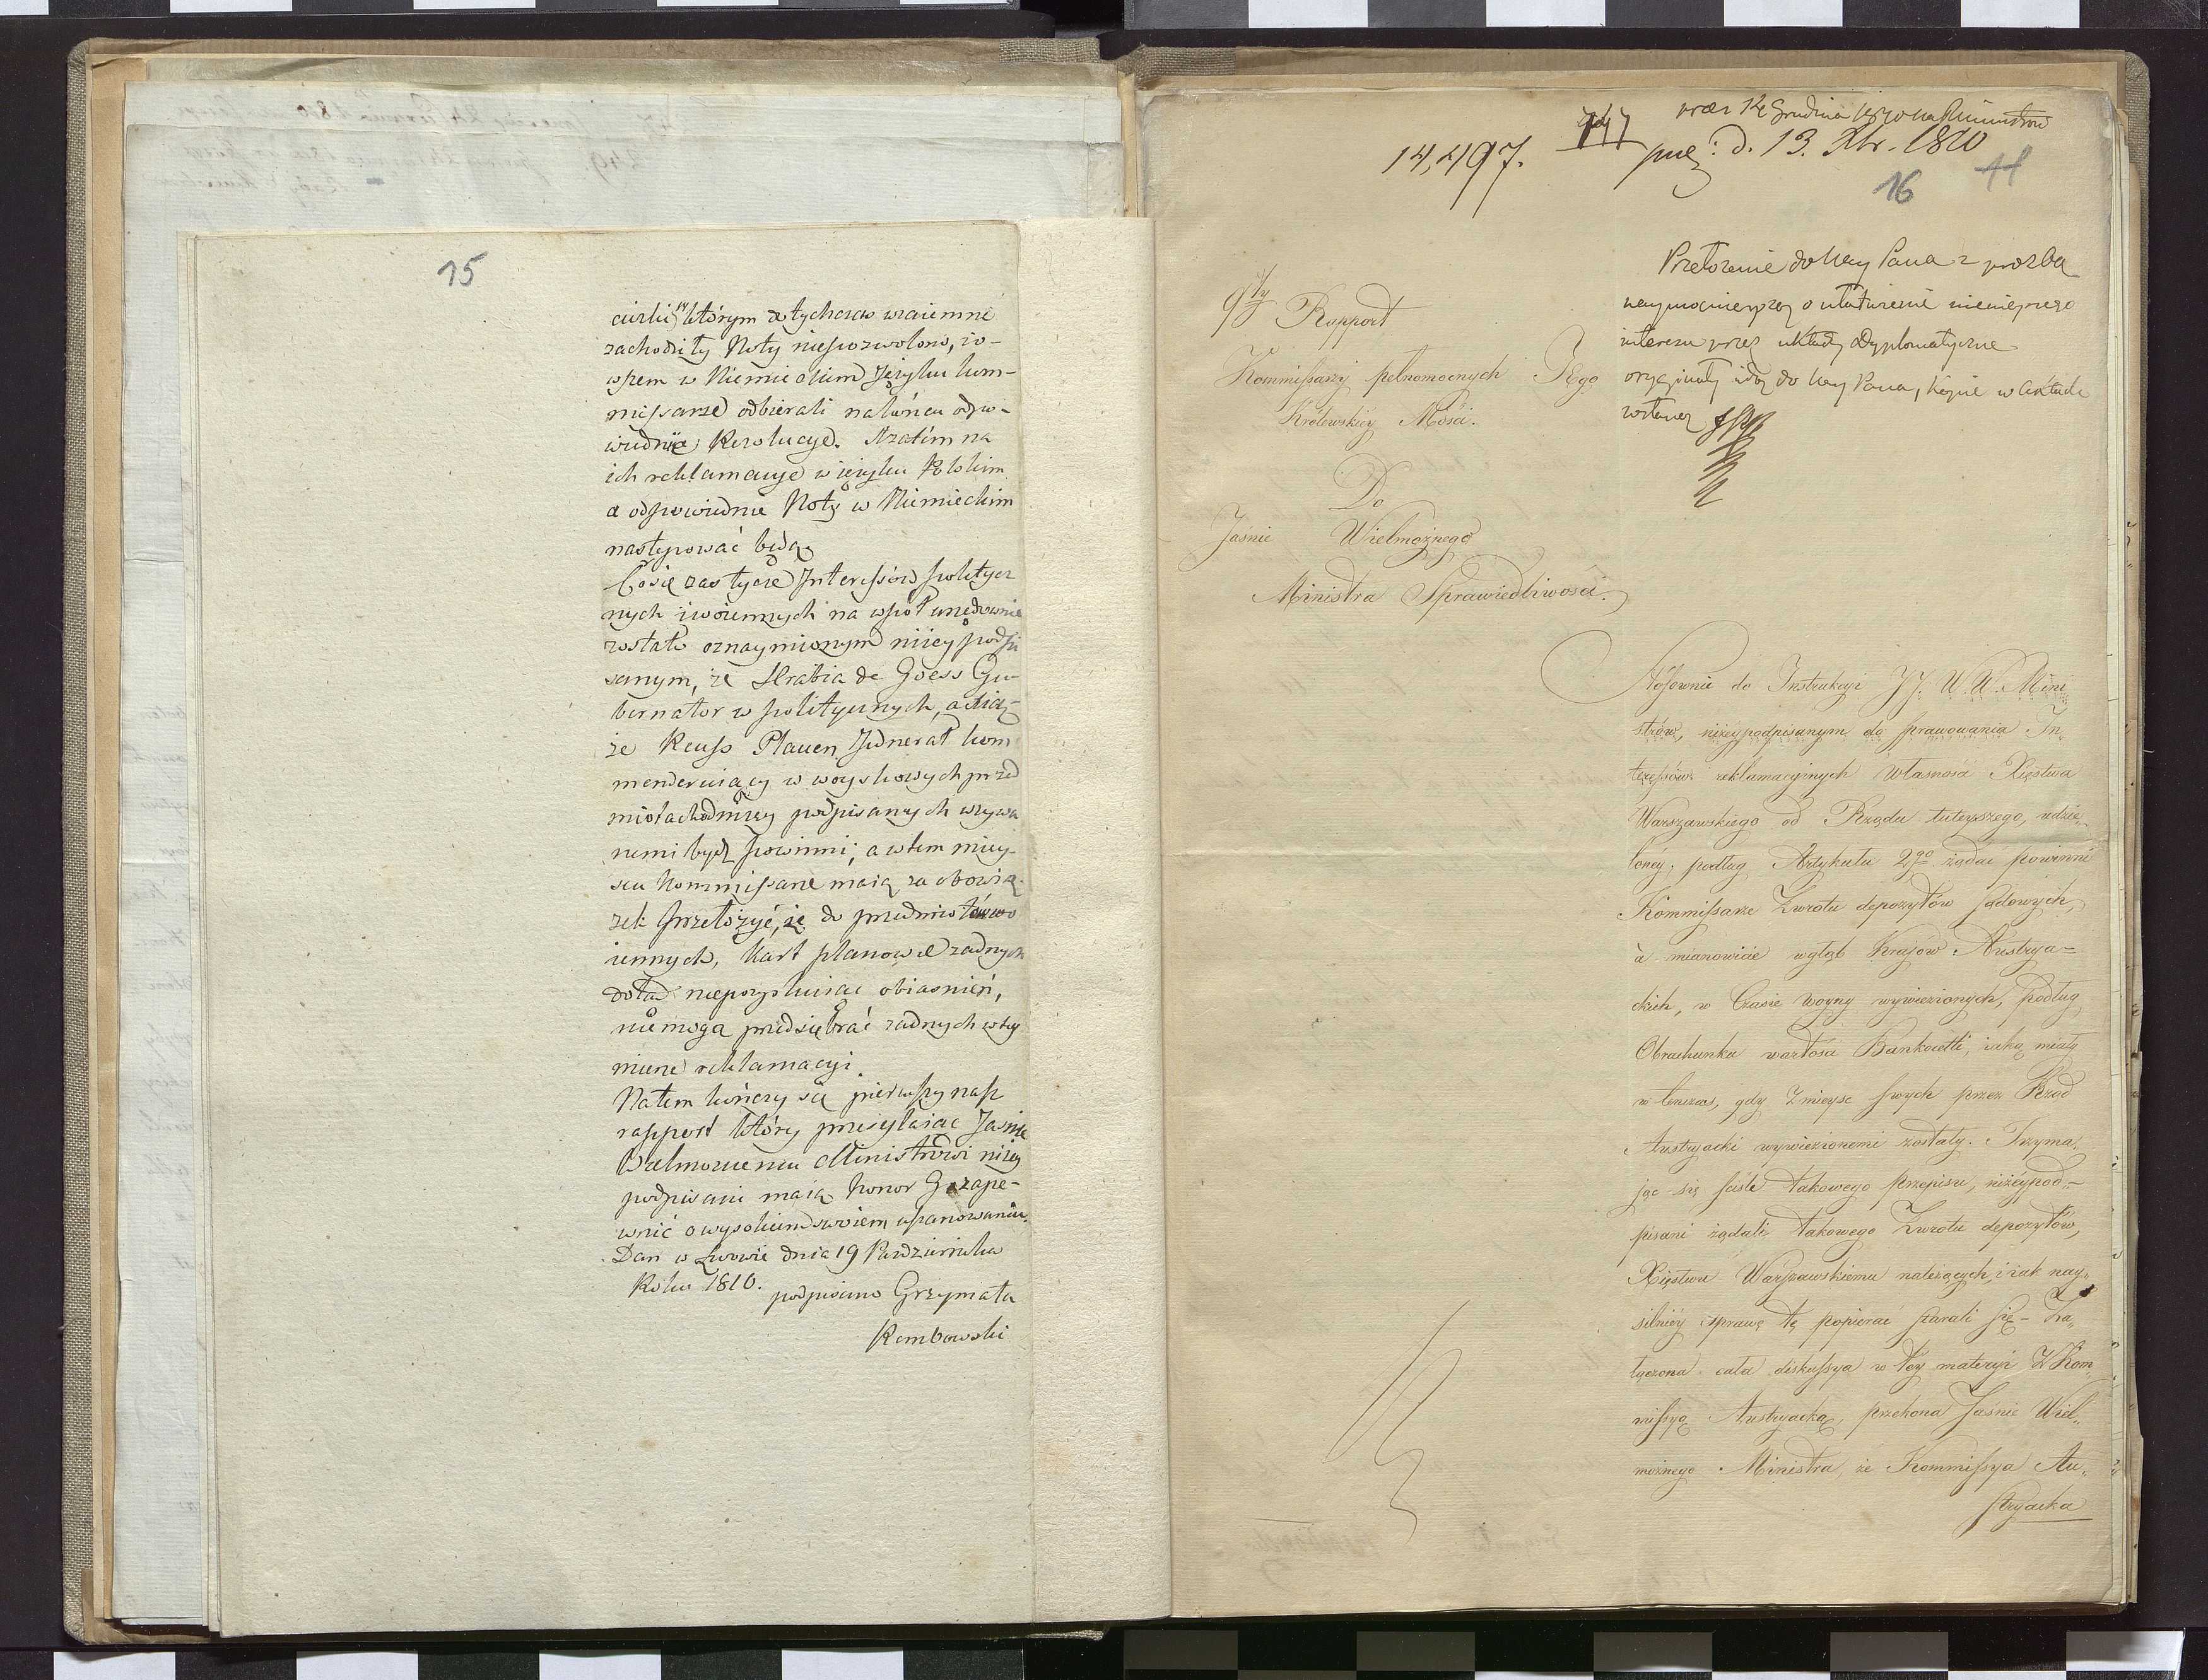 15
w którym dotychczas wzaiemne
zachodziły Noty niepozwolono, io-
wszem w Niemieckim Języku kom-
missarze odbierali na końcu odpo-
wiednie Rezolucye. A zatém na
ich reklamacye w ięzyku Polskim
a odpowiednie Noty w Niemieckim
następować będą.
Co się zaś tycze Interessów politycz
nych i woiennych na wspoł urzędownie
zostało oznaymionym niżey podpi
sanym, że Hrabia de Goess Gu-
bernator w politycznych, a Xią-
że Reuss Plauen Jenerał kom
menderuiący w woyskowych przed
miotach od niżey podpisanych wzywa
nemi bydź powinni; a w tem miey-
scu Kommissarze maią za obowią-
zek przełożyć, że do przedmiotów wo
iennych, kart planów &c żadnych
dotąd niepozyskuiąc obiaśnień,
niemogą przedsiębrać żadnych w tey
mierze reklamacyi.
Na tem kończy się pierwszy nasz
rapport który przesyłaiąc Jaśnie
Wielmożnemu Ministrowi niżey
podpisani maią honor Go zape-
wnić o wysokiem swoiem uszanowaniu.
Dan w Lwowie dnia 19 Pazdziernika
Roku 1810.
podpisano Grzymała
Rembowski
14,497.
747
praes 14 Grudnia 1810 na Ministrow
prez: d. 13. Xbr. 1810
16
11
Przełożenie do Nay Pana z prozbą
naymocnieyszą o ułatwienie ninieyszego
interesu przez układy dyplomatyczne
oryginały idą do Nay Pana, kopie w Aktach
zostaną
9ty Rapport
Kommissarzy pełnomocnych Jego
Królewskiéy Mości.
Do
Jaśnie Wielmożnego
Ministra Sprawiedliwości.
Stósownie do Instrukcyi JJ. W.W. Mini
strów, niżéypodpisanym do sprawowania In,
teressów reklamacyjnych własności Xięstwa
Warszawskiego od Rządu tuteyszego, udzie,
lonéy; podług Artykułu 2go żądać powinni
Kommissarze Zwrotu depozytów sądowych,
à mianowicie wgłąb Krajow Austrya=
ckich, w Czasie woyny wywiezionych, podług
Obrachunku wartości Bankocetli, iaką miały
w tenczas, gdy Z mieysc swych przez Rząd
Austryacki wywiezionemi zostały. Trzyma,
jąc się ściśle takowego przepisu, niżéypod,
pisani żądali takowego Zwrotu depozytów,
Xięstwu Warszawskiemu należących, i iak nay,
silniéy sprawę tę popierać starali się - Za,
łączona cała diskussya w tey materyi Z Kom
missyą Austryacką, przekona Jaśnie Wiel,,
możnego Ministra, że Kommissya Au,,
stryacka